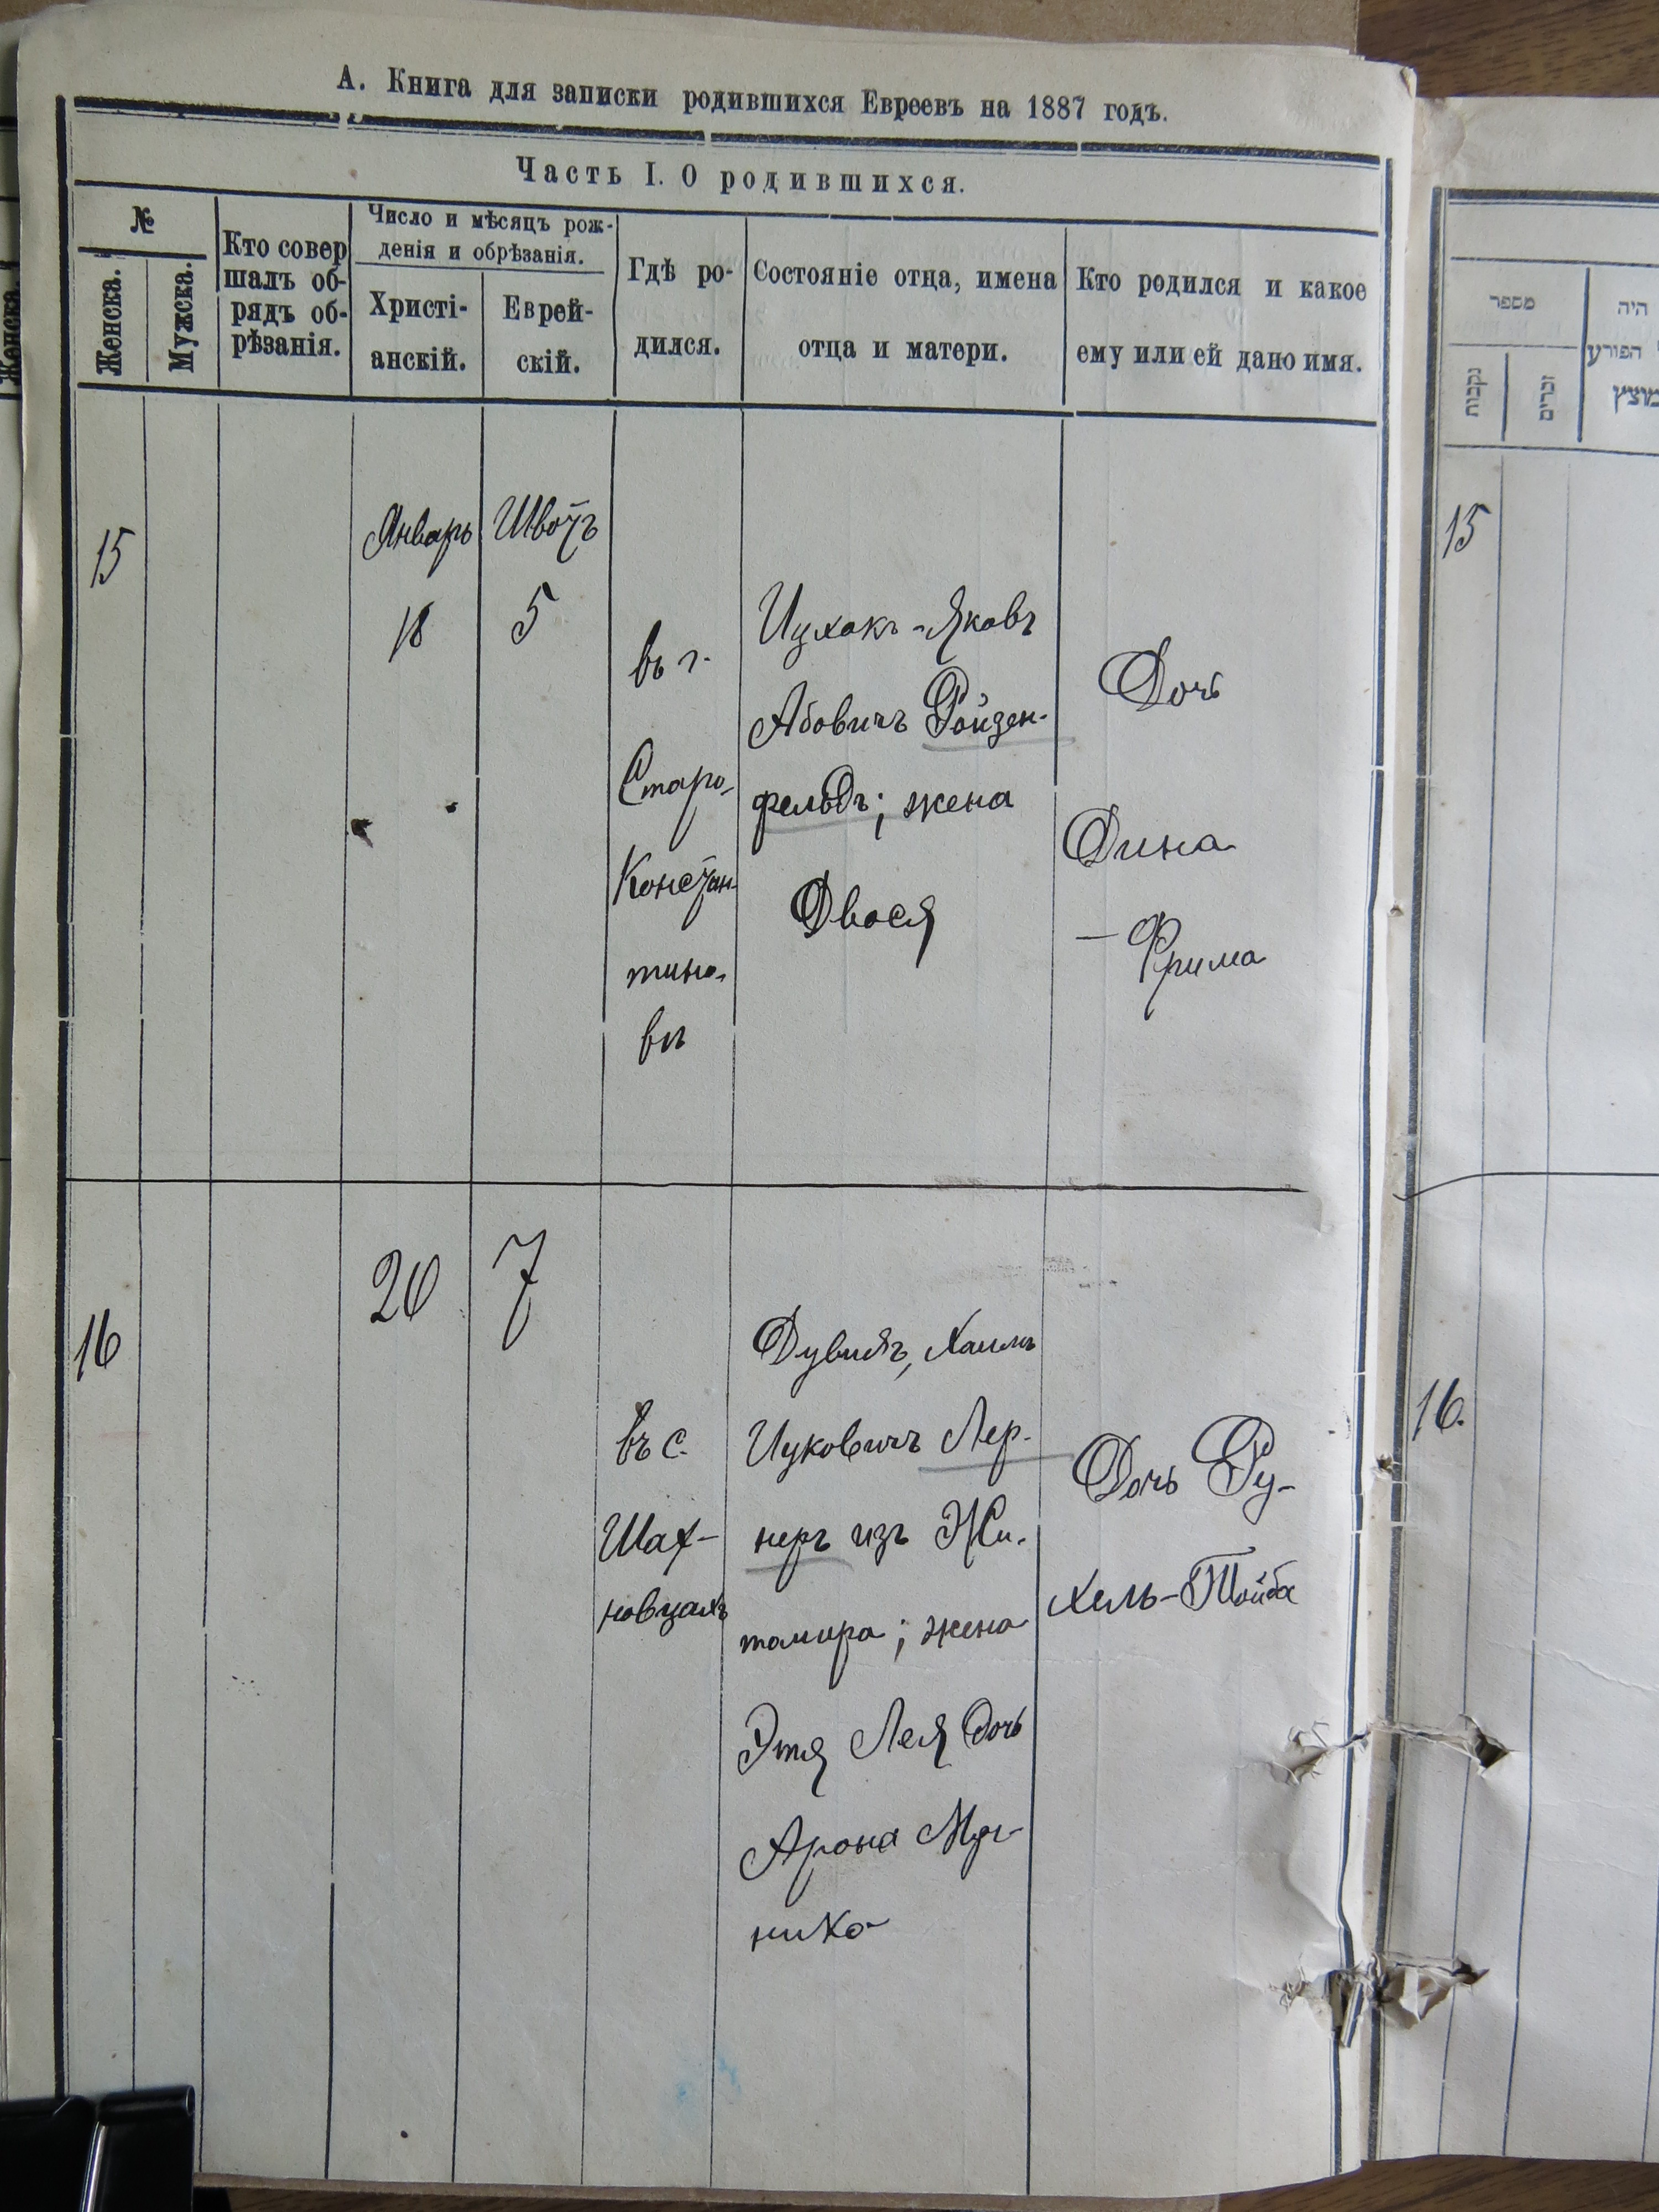 А. Книга для записки родившихся Евреевъ на 1887 годъ.
Часть I. О родившихся.
№
Женска.
Мужска.
Кто совер
шалъ об-
рядъ об-
рѣзанія.
Число и мѣсяцъ рож-
денія и обрѣзанія.
Христі-
анскій.
Еврей-
скій.
Гдѣ ро-
дился.
Состояніе отца, имена
отца и матери.
Кто родился и какое
ему или ей дано имя.
15
Январь
18
Швотъ
5
въ г.
Старо-
Констан-
тино-
вѣ
Ицхокъ-Яковъ
Абовичъ Ройзен-
фельдъ; жена
Двося
Дочь
Дина
- Фрима
16
20
7
въ с.
Шах-
новцахъ
Дувидъ, Хаимъ
Ицковичъ Лер-
неръ изъ Жи-
томира; жена
Этя Лея дочь
Арона
Дочь Ру-
хель-Тойба
Женска.
מספר
נקבות
זכרים
היה
הפורע
מוצץ
15
16.